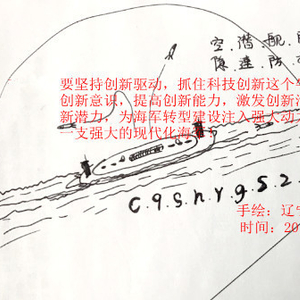 空.潜.舰.
隐.速.防.
要坚持创新驱动，抓住科技创新这个
创新意识，提高创新能力，激发创新活
新潜力，为海军转型建设注入强大动
一支强大的现代化海
C9S.n.y.g.s.2.
手绘：辽宁
时间：20